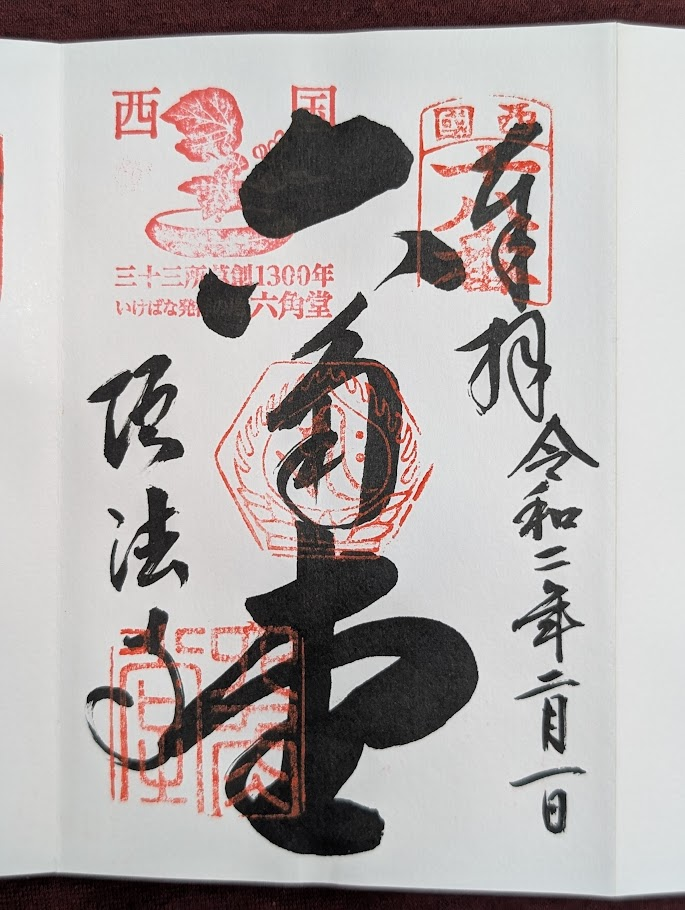 西國
十八番
奉拝
令和二年二月一日
六角堂
頂法寺
西国
三十三所草創1300年
いけばな発祥の地 六角堂